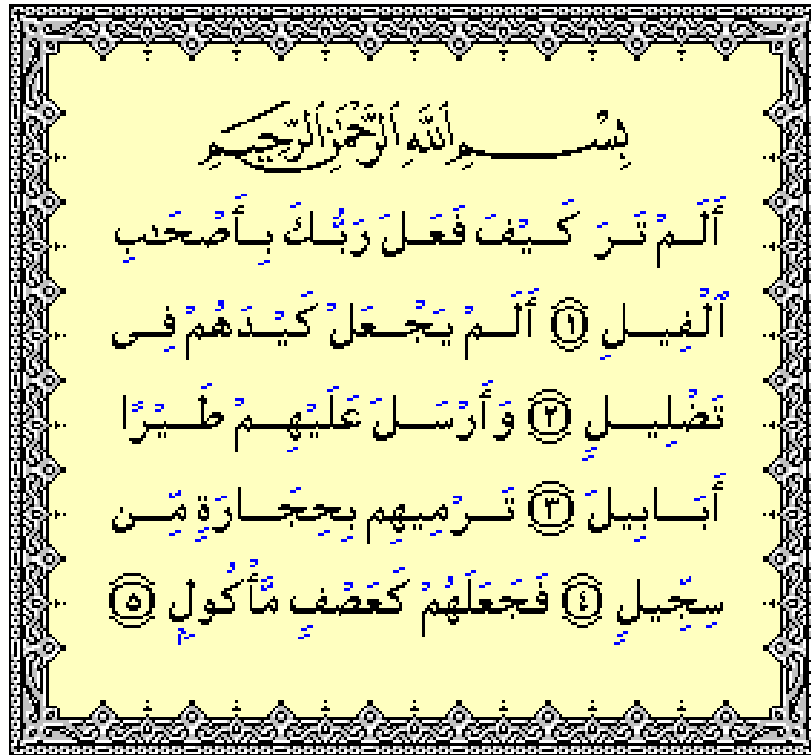 بِسْمِ اللَّهِ الرَّحْمَٰنِ الرَّحِيمِ
أَلَمْ تَرَ كَيْفَ فَعَلَ رَبُّكَ بِأَصْحَٰبِ
ٱلْفِيلِ ١ أَلَمْ يَجْعَلْ كَيْدَهُمْ فِى
تَضْلِيلٍ ٢ وَأَرْسَلَ عَلَيْهِمْ طَيْرًا
أَبَابِيلَ ٣ تَرْمِيهِم بِحِجَارَةٍ مِّن
سِجِّيلٍ ٤ فَجَعَلَهُمْ كَعَصْفٍ مَّأْكُولٍۭ ٥